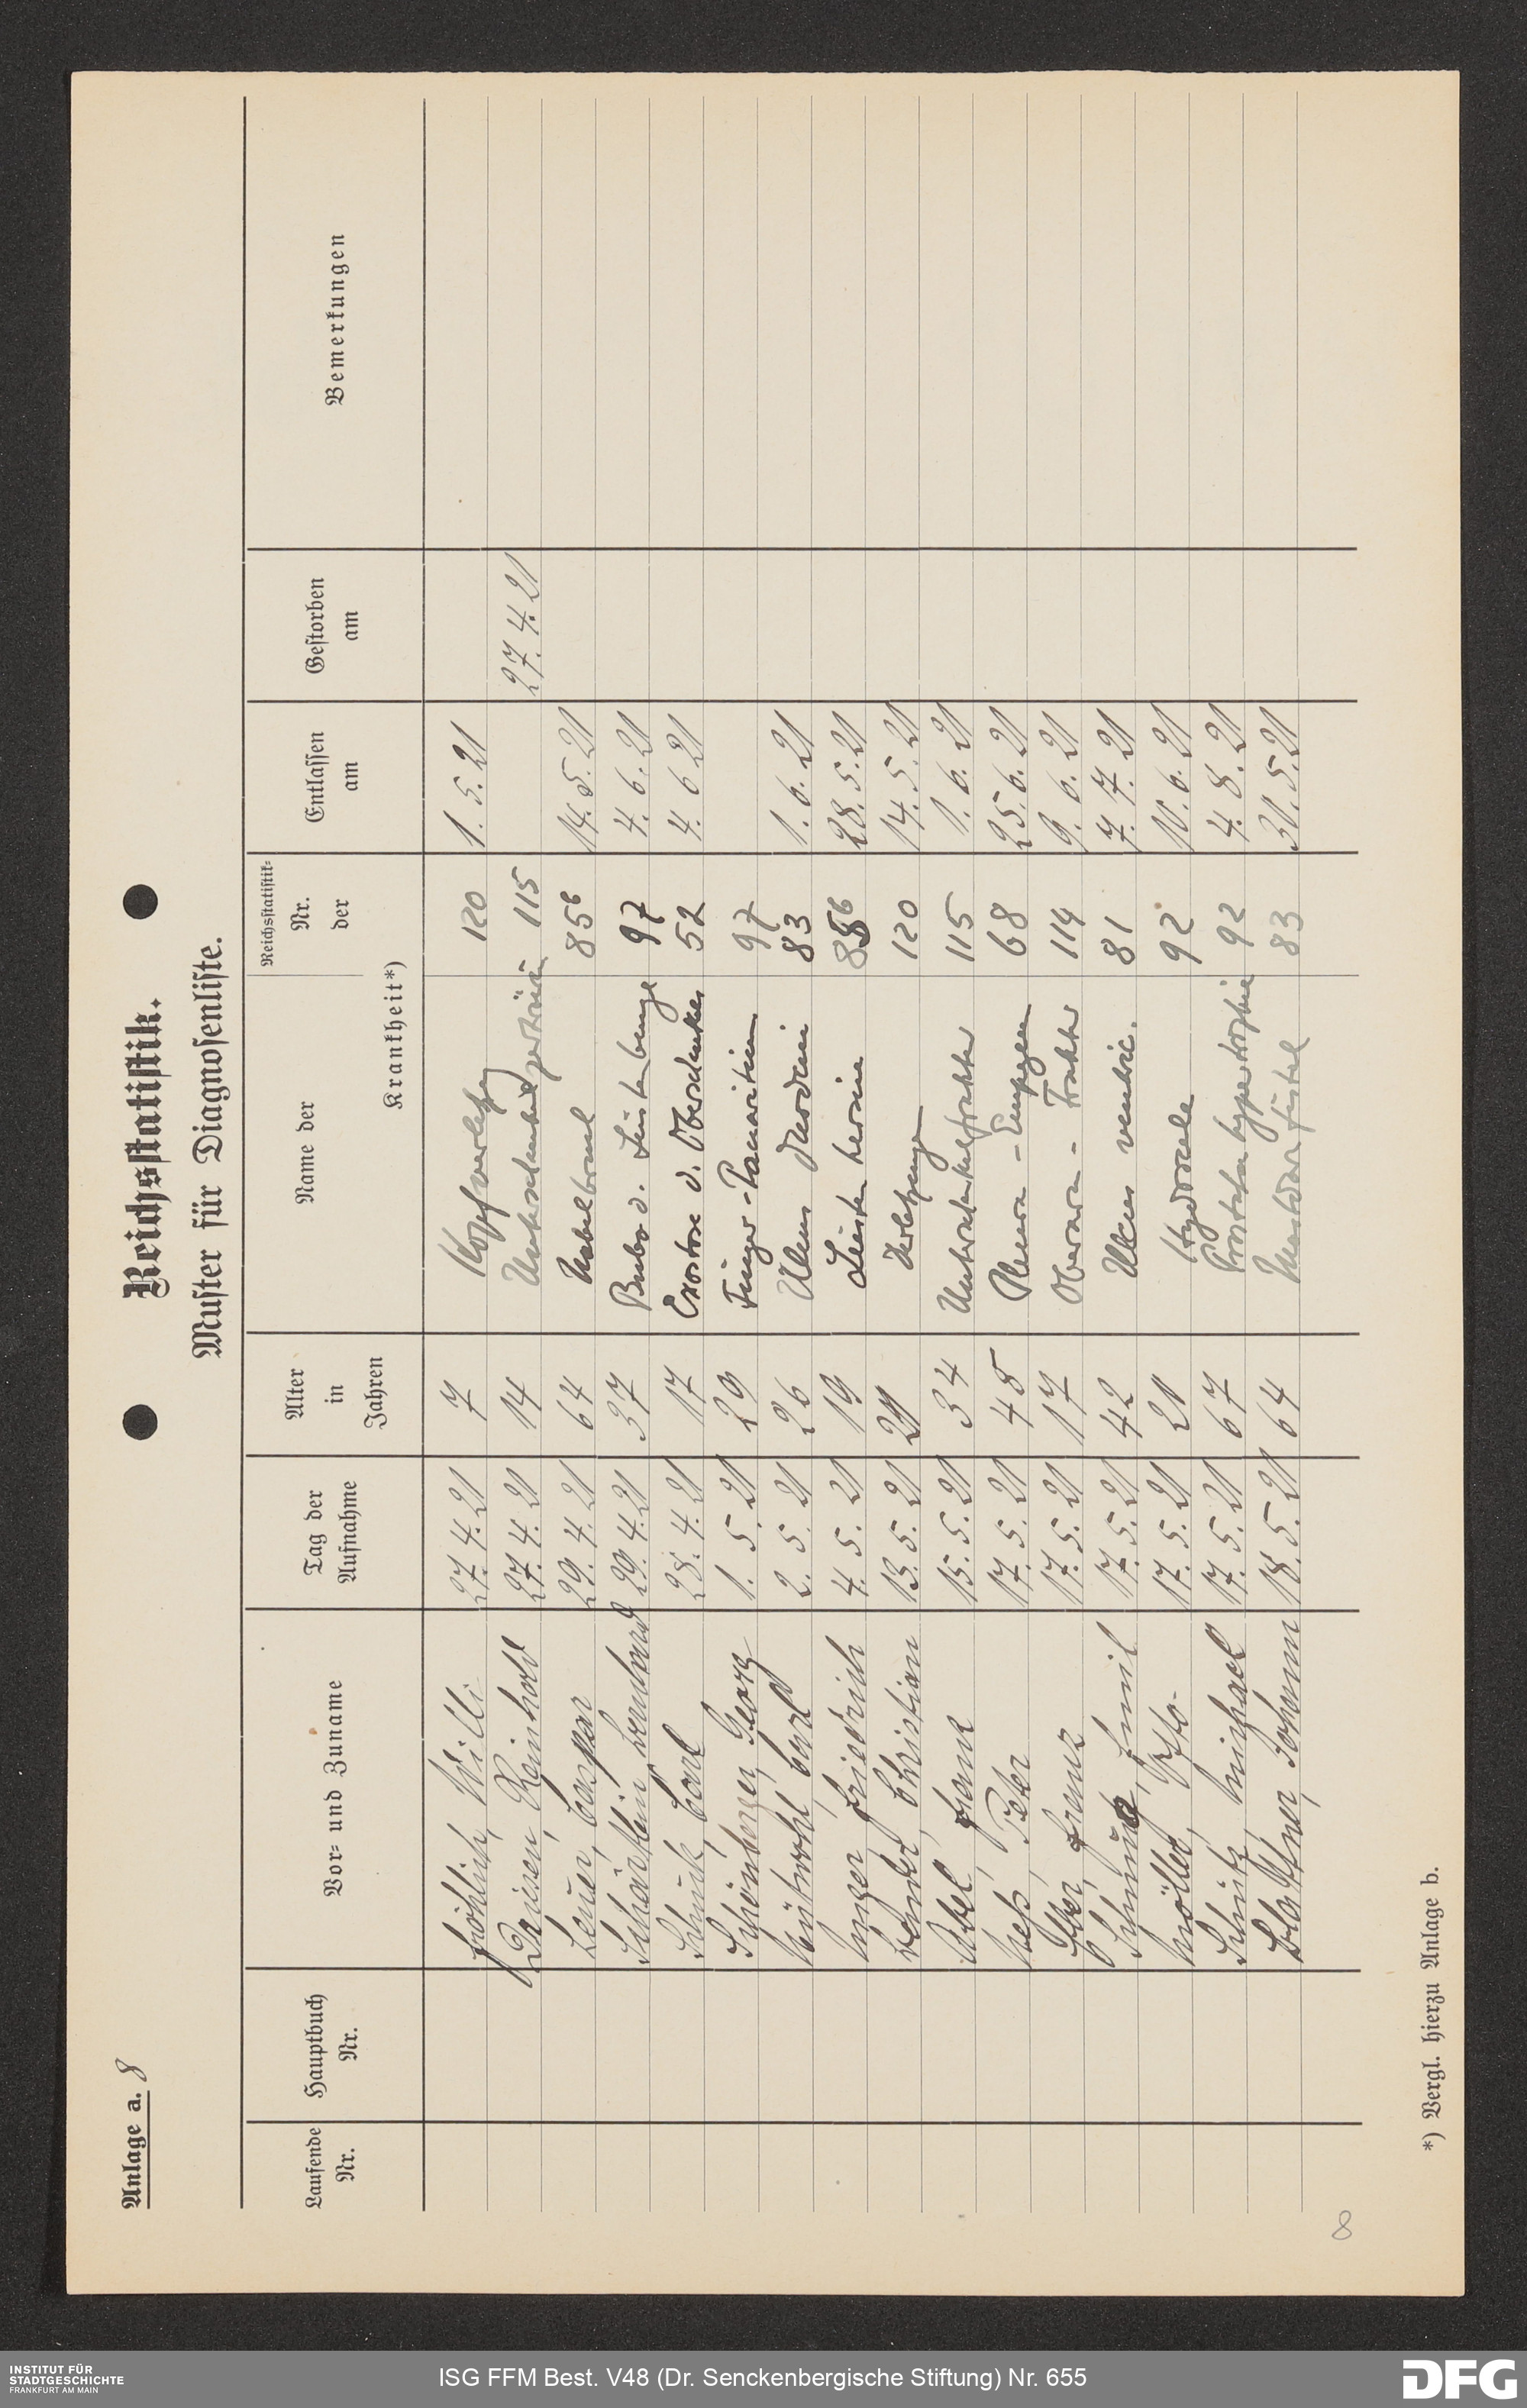 Anlage a. 8
Reichsstatistik.
Muster für Diagnosenliste.
Laufende Nr. Hauptbuch Nr. Vor- und Zuname Tag der Aufnahme Alter in Jahren Name der Reichsstatistik- Nr. der Krankheit*) Entlassen am Gestorben am Bemerkungen
Fröhlich, Willi 27. 4. 21 7 Kopfverletzg 120 1. 5. 21
Reinhold 27. 4. 21 14 115 27. 4. 21
Leuer, Caspar 29. 4. 21 64 Nabelbruch 85b 14. 5. 21
Leonhard 29. 4. 21 37 Bubo d. Leistenbeuge 97 4. 6. 21
Schuck, Carl 28. 4. 21 17 Exostose d. Oberschenkels 52 4. 6 21
Schönberger, Georg 1. 5. 21 29 Finger-Panaritium 97
Carl 2. 5. 21 26 Ulcus duodeni 83 1. 6. 21
Unger, Friedrich 4. 5. 21 19 Leistenhernie 28. 5. 21
Bender, Christian 13. 5. 21 Verletzung 120 14. 5. 21
Abel, Frank 15. 5. 21 34 Unterschenkelfraktur 115 1. 6. 21
Heß, Peter 17. 5. 21 48 Pleura-Empyem 68 25. 6. 21
Franz 17. 5. 21 17 Oberarm-Fraktur 114 9. 6. 21
Emil 17. 5. 21 42 Ulcus ventric. 81 7. 7. 21
Möller, Otto 17. 5. 21 21 Hydrocele 92 10. 6. 21
Schütz, Michael 17. 5. 21 67 Prostatahypertrophie 92 4. 8. 21
Johann 18. 5. 21 64 Mastdarmfistel 83 31. 5. 21
*) Vergl. hierzu Anlage b.
8
INSTITUT FÜR
STADTGESCHICHTE
FRANKFURT AM MAIN
ISG FFM Best. V48 (Dr. Senckenbergische Stiftung) Nr. 655
DFG